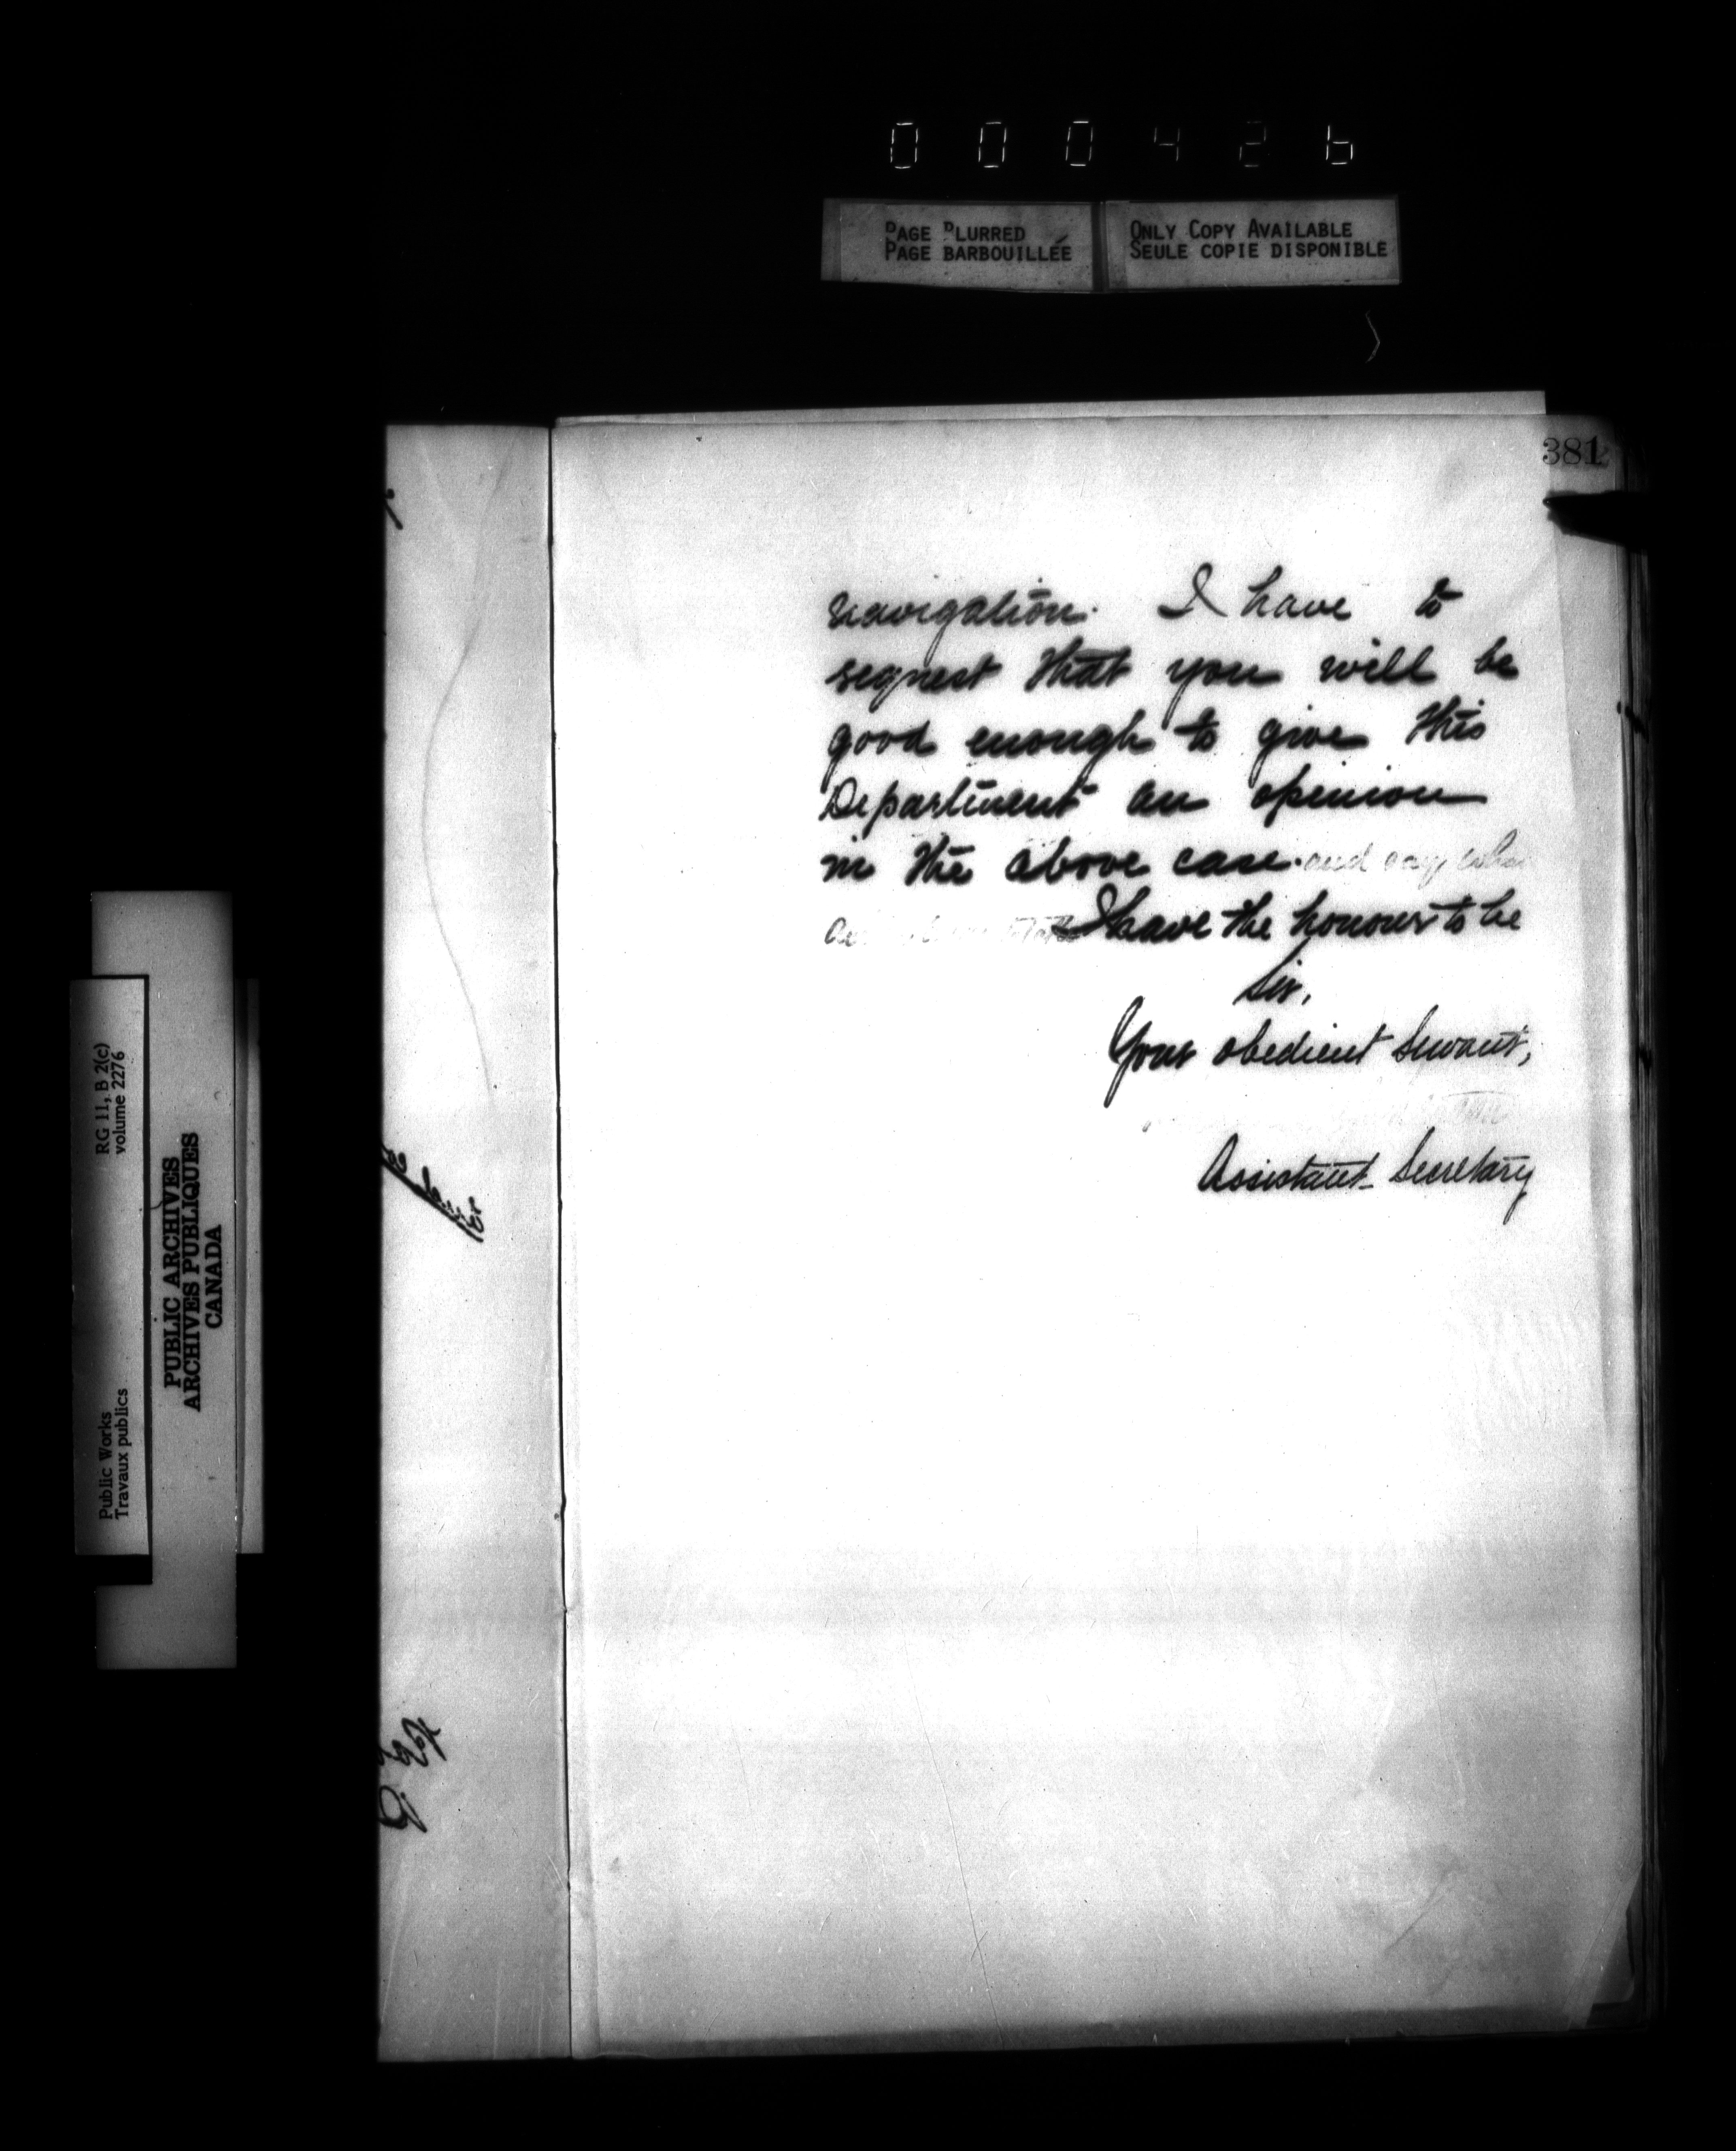 000426
PAGE BLURRED
PAGE BARBOUILLÉE
ONLY COPY AVAILABLE
SEULE COPIE DISPONIBLE
381
navigation. I have to
request that you will be
good enough to give this
Department an opinion
in the above case. and any
I have the honour to be
Sir,
Your obedient Servant,
Assistant Secretary
RG 11, B 2(c)
volume 2276
Public Works
Travaux publics
PUBLIC ARCHIVES
ARCHIVES PUBLIQUES
CANADA